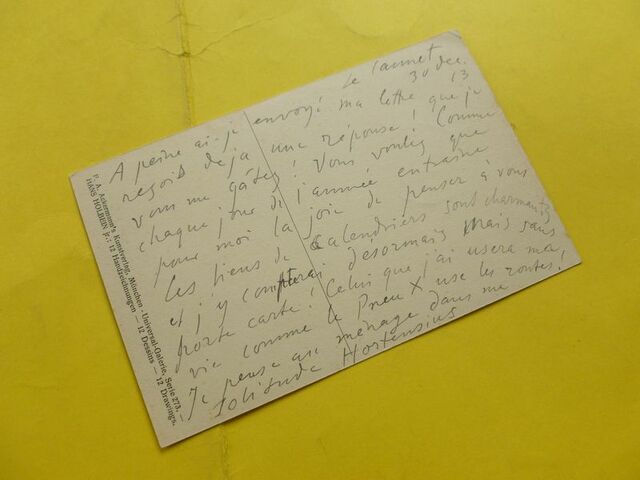 Le Cannet
30 dec. 13
A peine ai-je envoyé ma lettre que je
reçois deja une réponse ! Comme
vous me gâtez ! Vous voulez que
chaque jour de l'année entraine
pour moi la joie de penser à vous
les tiens de Calendriers sont charmants
et j'y compterai désormais mais sans
porte carte ! Celui que j'ai usera ma
vie comme le Pneu X use les routes !
Je pense au ménage dans ma
solitude Hortensius
F. A. Ackermann's Kunstverlag, München - Universal-Galerie, Serie 273, —
HANS HOLBEIN jr.: 12 Handzeichnungen — 12 Dessins — 12 Drawings.